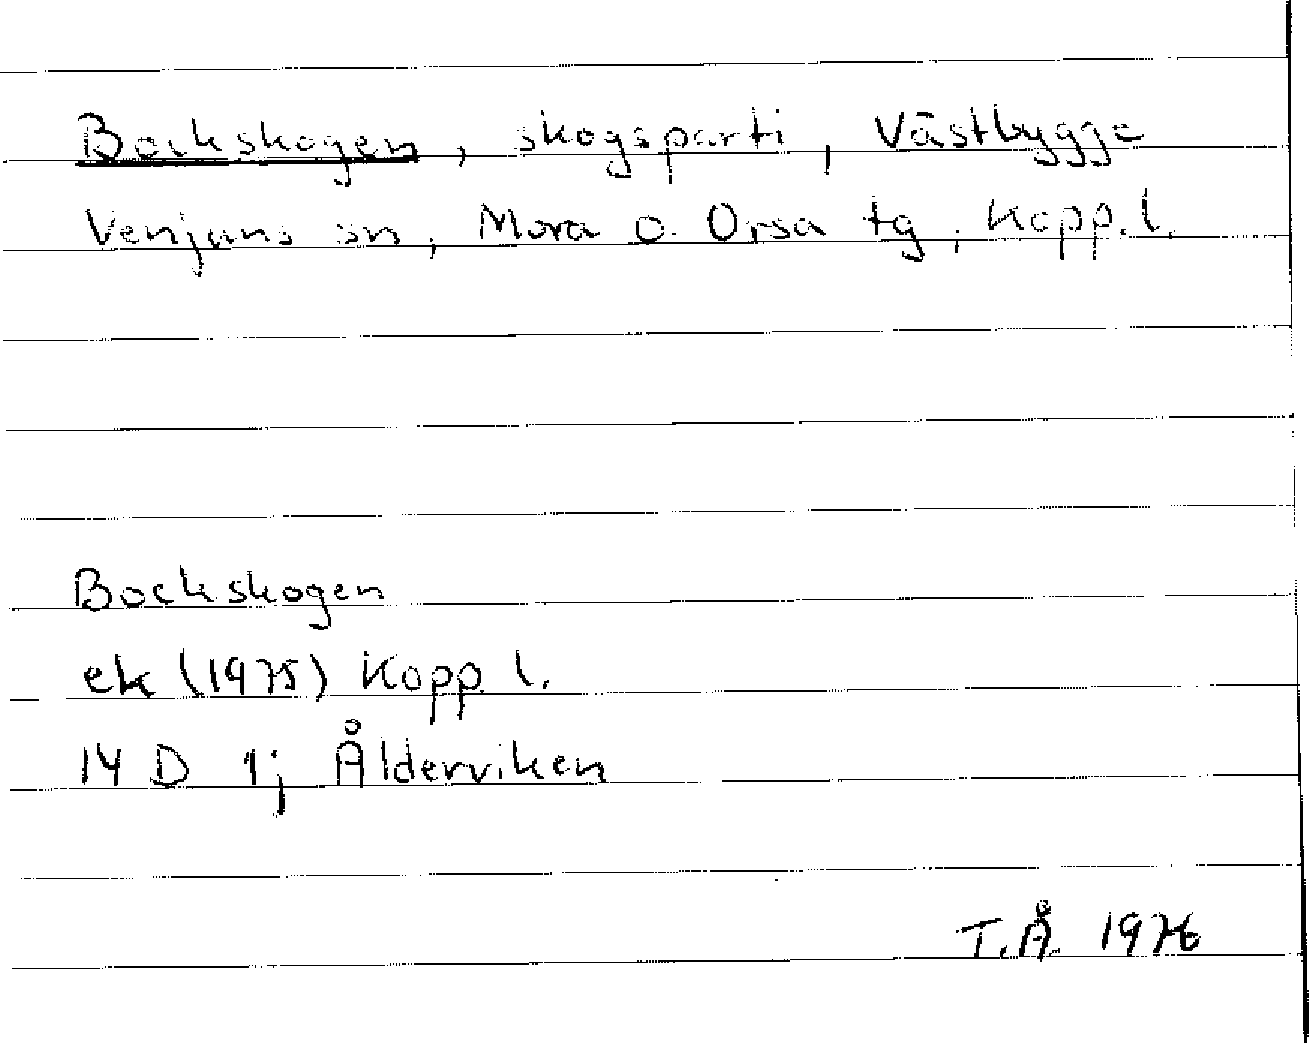 Bockskogen, skogsparti, Västbygge
Venjans sn, Mora o. Orsa tg, Kopp. l.
Bockskogen
ek (1975) Kopp l.
14 D 1j Ålderviken
T.Å. 1976